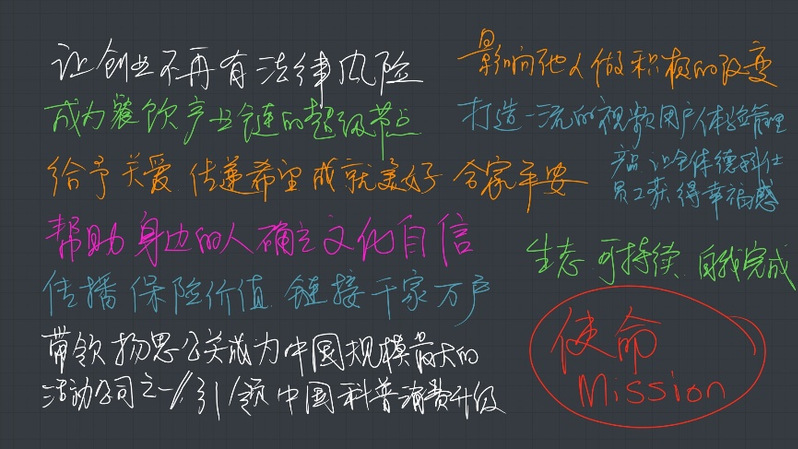 让创业不再有法律风险
成为餐饮产业链的超级节点
给予关爱 传递希望 成就美好 合家平安
帮助身边的人确立文化自信
传播保险价值 链接千家万户
带领扬思公关成为中国规模最大的
活动公司之一//引领中国科普消费升级
影响他人做积极的改变
打造一流的视频用户体验管理
产品 让全体德科仕
员工获得幸福感
生态 可持续 自我完成
使命
Mission